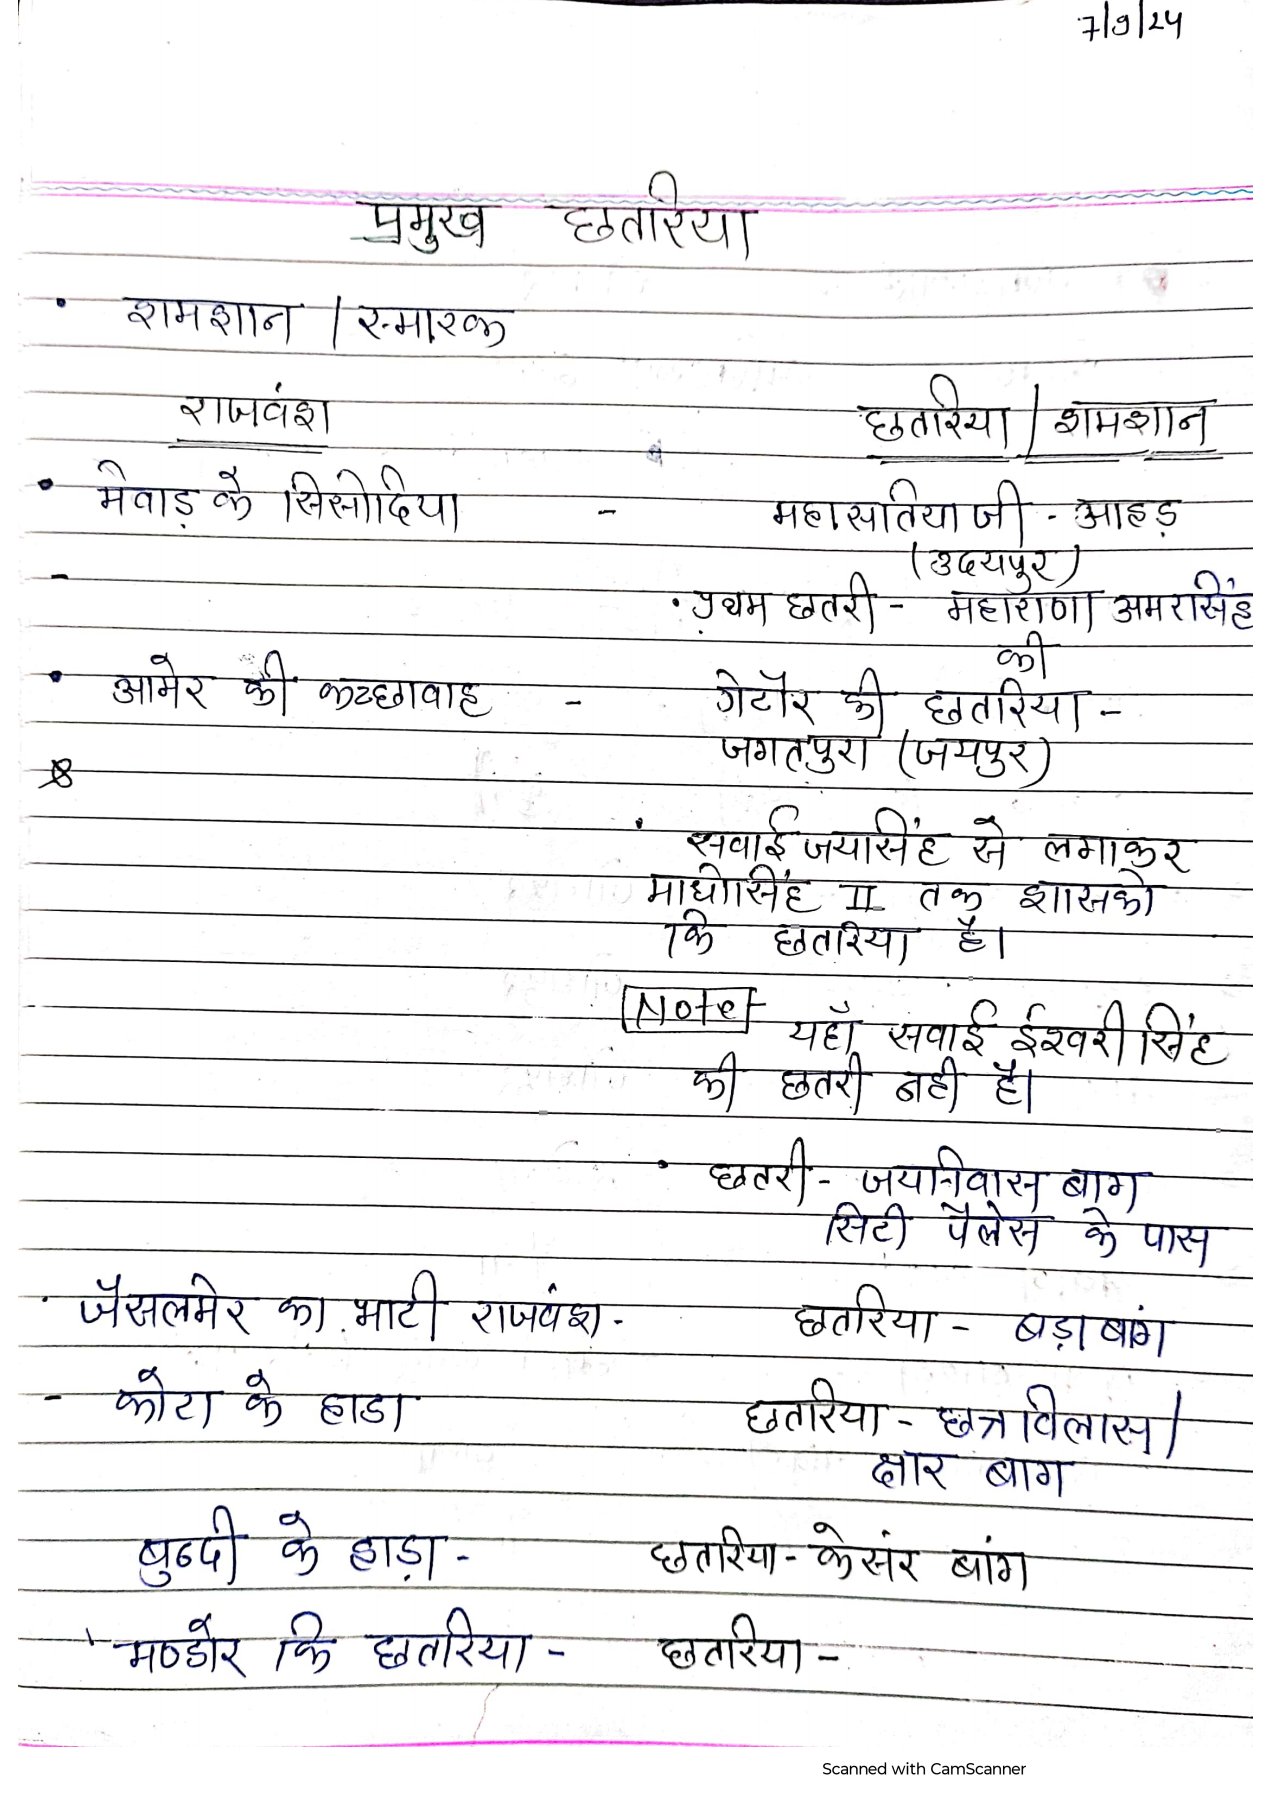 7/9/24
प्रमुख छतरिया
• शमशान / स्मारक
राजवंश छतरिया / शमशान
• मेवाड़ के सिसोदिया - महासतिया जी - आहड़
(उदयपुर)
- • प्रथम छतरी - महाराणा अमरसिंह
की
• आमेर की कच्छावाह - गेटौर की छतरिया -
जगतपुरा (जयपुर)
• सवाई जयसिंह से लगाकर
माधोसिंह II तक शासको
कि छतरिया है।
Note यहाँ सवाई ईश्वरी सिंह
की छतरी नही है।
• छतरी - जयनिवास बाग
सिटी पैलेस के पास
• जैसलमेर का भाटी राजवंश - छतरिया - बड़ा बांग
- कोटा के हाडा छतरिया - छत्र विलास /
क्षार बाग
बुन्दी के हाड़ा - छतरिया - केसंर बांग
' मण्डोर कि छतरिया - छतरिया -
Scanned with CamScanner